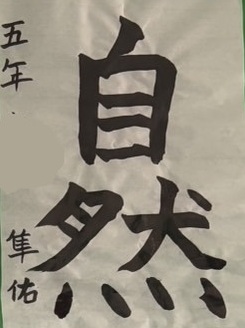 自然
五年
隼佑